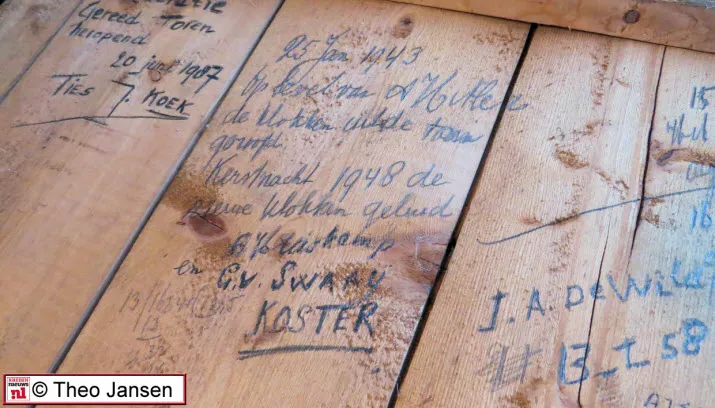 Gereed. Toren
heropend
20 juni 1987
TIES J. KOEK
25 Jan 1943
op bevel van A Hitler
de klokken uit de toren
geroofd
Kerstnacht 1948 de
nieuwe klokken geluid
en G.V. SWAAY
KOSTER
J. A. DeWild
13-1-58
15
16
EDEREN
nieuws
nl
© Theo Jansen